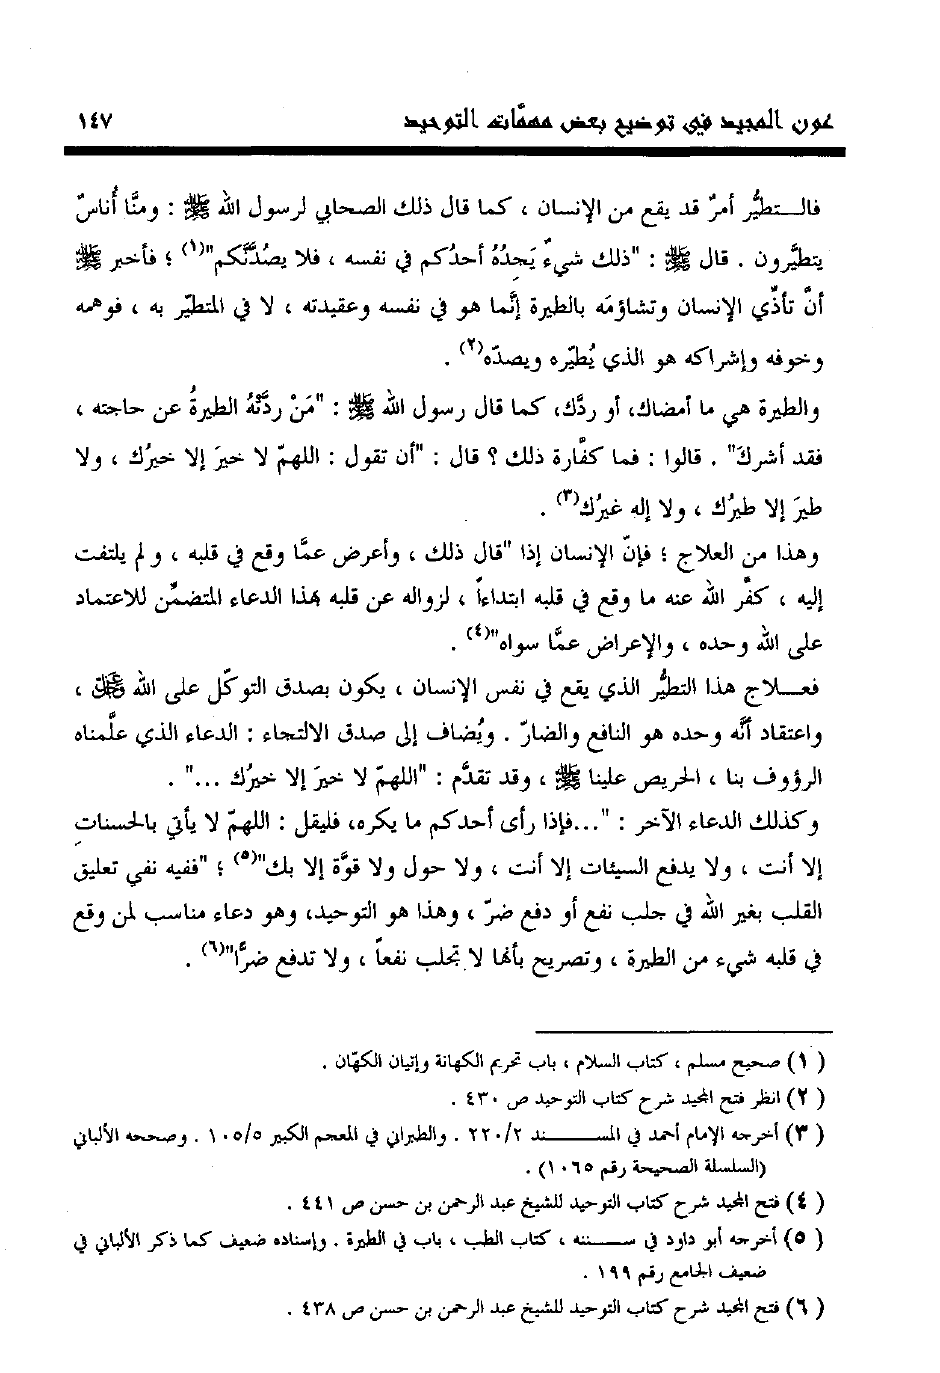 عون المجيد في توضيح بعض مهمَّات التوحيد ١٤٧
فالتطيُّر أمرٌ قد يقع من الإنسان ، كما قال ذلك الصحابي لرسول الله ﷺ : ومنَّا أُناسٌ
يتطيَّرون . قال ﷺ : "ذلك شيءٌ يَجِدُهُ أحدُكم في نفسه ، فلا يصُدَّنَّكم"(١) ؛ فأخبر ﷺ
أنَّ تأذّي الإنسان وتشاؤمَه بالطيرة إنَّما هو في نفسه وعقيدته ، لا في المتطيّر به ، فوهمه
وخوفه وإشراكه هو الذي يُطيّره ويصدّه(٢) .
والطيرة هي ما أمضاك، أو ردَّك، كما قال رسول الله ﷺ : "مَنْ ردَّتْهُ الطيرةُ عن حاجته ،
فقد أشرك" . قالوا : فما كفَّارة ذلك ؟ قال : "أن تقول : اللهمّ لا خيرَ إلا خيرُك ، ولا
طيرَ إلا طيرُك ، ولا إله غيرُك(٣) .
وهذا من العلاج ؛ فإنّ الإنسان إذا "قال ذلك ، وأعرض عمَّا وقع في قلبه ، و لم يلتفت
إليه ، كفَّر الله عنه ما وقع في قلبه ابتداءاً ، لزواله عن قلبه بهذا الدعاء المتضمِّن للاعتماد
على الله وحده ، والإعراض عمَّا سواه"(٤) .
فعلاج هذا التطيُّر الذي يقع في نفس الإنسان ، يكون بصدق التوكّل على الله ﷻ ،
واعتقاد أنَّه وحده هو النافع والضارّ . ويُضاف إلى صدق الالتجاء : الدعاء الذي علَّمناه
الرؤوف بنا ، الحريص علينا ﷺ ، وقد تقدَّم : "اللهمّ لا خيرَ إلا خيرُك ..." .
وكذلك الدعاء الآخر : "...فإذا رأى أحدكم ما يكره، فليقل : اللهمّ لا يأتي بالحسناتِ
إلا أنت ، ولا يدفع السيئات إلا أنت ، ولا حول ولا قوَّة إلا بك"(٥) ؛ "ففيه نفي تعليق
القلب بغير الله في جلب نفع أو دفع ضرّ ، وهذا هو التوحيد، وهو دعاء مناسب لمن وقع
في قلبه شيء من الطيرة ، وتصريح بأنها لا تجلب نفعاً ، ولا تدفع ضرًّا"(٦) .
( ١) صحيح مسلم ، كتاب السلام ، باب تحريم الكهانة وإتيان الكهّان .
( ٢) انظر فتح المجيد شرح كتاب التوحيد ص ٤٣٠ .
( ٣) أخرجه الإمام أحمد في المسند ٢٢٠/٢ . والطبراني في المعجم الكبير ١٠٥/٥ . وصححه الألباني
(السلسلة الصحيحة رقم ١٠٦٥) .
( ٤) فتح المجيد شرح كتاب التوحيد للشيخ عبد الرحمن بن حسن ص ٤٤١ .
( ٥) أخرجه أبو داود في سننه ، كتاب الطب ، باب في الطيرة . وإسناده ضعيف كما ذكر الألباني في
ضعيف الجامع رقم ١٩٩ .
( ٦) فتح المجيد شرح كتاب التوحيد للشيخ عبد الرحمن بن حسن ص ٤٣٨ .